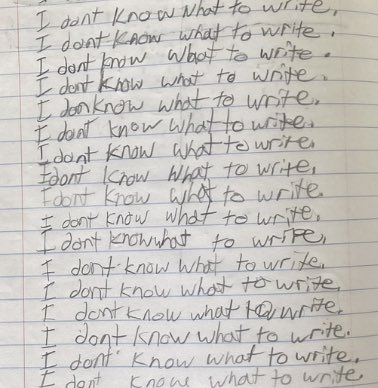 I dont Know what to write,
I dont Know what to write.
I dont know what to write.
I dont know what to write.
I donknow what to write.
I dont know what to write.
I dont know what to write.
I dont know what to write,
I dont know what to write.
I dont know what to write,
I dont knowwhat to write,
I dont know what to write.
I dont know what to write,
I dont know what to write.
I dont know what to write.
I dont know what to write.
I dont know what to write.